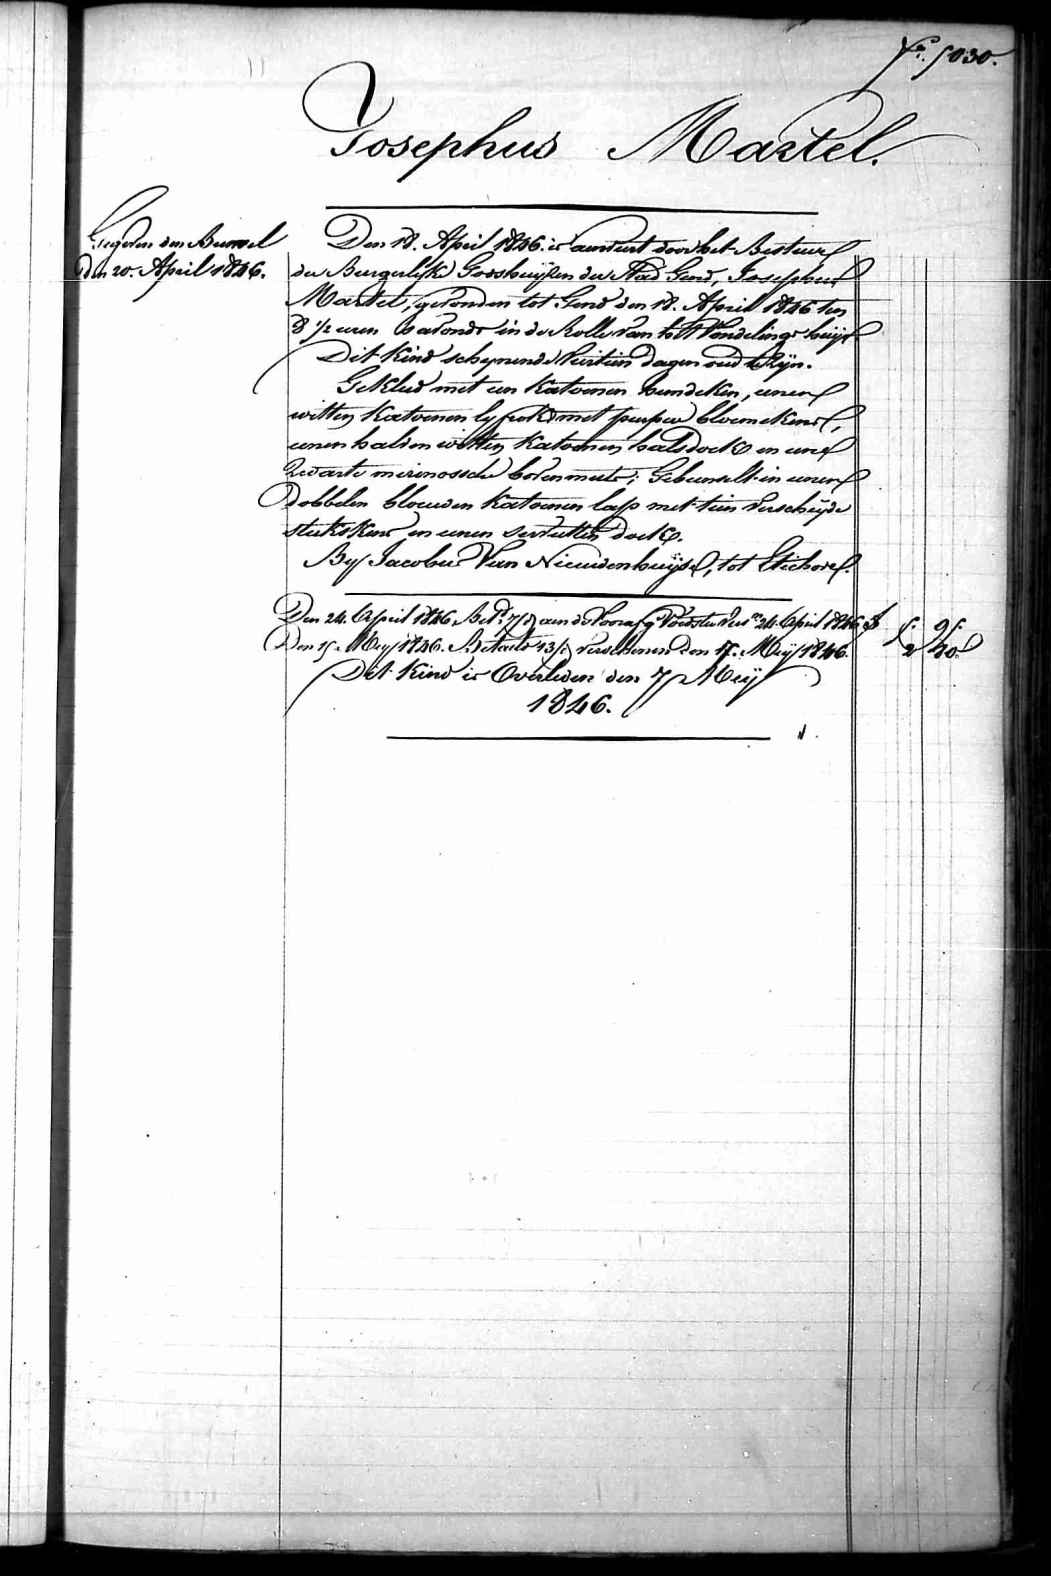 fo. 1030.
Josephus Martel.
Gegeven den Bussel
den 20. April 1846.
Den 18. April 1846. is aenveert door het Bestuur
der Burgerlijke Godshuijzen der Stad Gend, Josephus
Martel, gevonden tot Gend den 18. April 1846 ten
8 1/2 uren 's avonds in de Rolle van het Vondelings huijs.
Dit Kind schynende veirtien dagen oud te zijn.
Gekleed met een Katoenen hemdeken, eenen
witten Katoenen lyfrok met peirpere bloemekens,
eenen halven witten Katoenen halsdoek en eene
zwarte merinossche bovenmuts; Gebunselt in eenen
dobbelen blouwen Katoenen lap met tien verscheyde
stukskens en eenen servetten doek.
By Jacobus Van Nieuwenhuijse, tot Etichove.
Den 24. April 1846 Bet. aen de Voorafg. Voedster Vers. 24. April 1846
Den 15. Mey 1846. Betaelt verschenen den Meij 1846.
Dit Kind is Overleden den 7 Meij
1846.